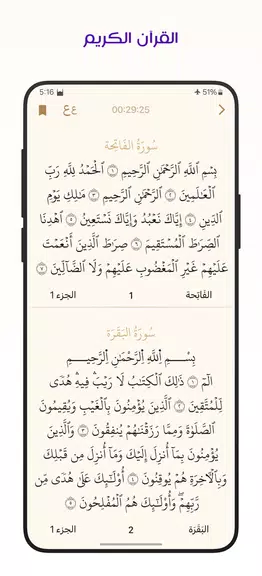 القرآن الكريم
5:16 51%
عع 00:29:25
سُورَةُ الفَاتِحَة
بِسْمِ ٱللَّهِ ٱلرَّحْمَٰنِ ٱلرَّحِيمِ ۝١ ٱلْحَمْدُ لِلَّهِ رَبِّ
ٱلْعَٰلَمِينَ ۝٢ ٱلرَّحْمَٰنِ ٱلرَّحِيمِ ۝٣ مَٰلِكِ يَوْمِ
ٱلدِّينِ ۝٤ إِيَّاكَ نَعْبُدُ وَإِيَّاكَ نَسْتَعِينُ ۝٥ ٱهْدِنَا
ٱلصِّرَٰطَ ٱلْمُسْتَقِيمَ ۝٦ صِرَٰطَ ٱلَّذِينَ أَنْعَمْتَ
عَلَيْهِمْ غَيْرِ ٱلْمَغْضُوبِ عَلَيْهِمْ وَلَا ٱلضَّآلِّينَ ۝٧
الفَاتِحة 1 الجزء ١
سُورَةُ البَقَرَة
بِسْمِ ٱللَّهِ ٱلرَّحْمَٰنِ ٱلرَّحِيمِ
الٓمٓ ۝١ ذَٰلِكَ ٱلْكِتَٰبُ لَا رَيْبَ ۛ فِيهِ ۛ هُدًى
لِّلْمُتَّقِينَ ۝٢ ٱلَّذِينَ يُؤْمِنُونَ بِٱلْغَيْبِ وَيُقِيمُونَ
ٱلصَّلَوٰةَ وَمِمَّا رَزَقْنَٰهُمْ يُنفِقُونَ ۝٣ وَٱلَّذِينَ
يُؤْمِنُونَ بِمَآ أُنزِلَ إِلَيْكَ وَمَآ أُنزِلَ مِن قَبْلِكَ
وَبِٱلْءَاخِرَةِ هُمْ يُوقِنُونَ ۝٤ أُو۟لَٰٓئِكَ عَلَىٰ هُدًى مِّن
رَّبِّهِمْ ۖ وَأُو۟لَٰٓئِكَ هُمُ ٱلْمُفْلِحُونَ ۝٥
البَقَرَة 2 الجزء ١